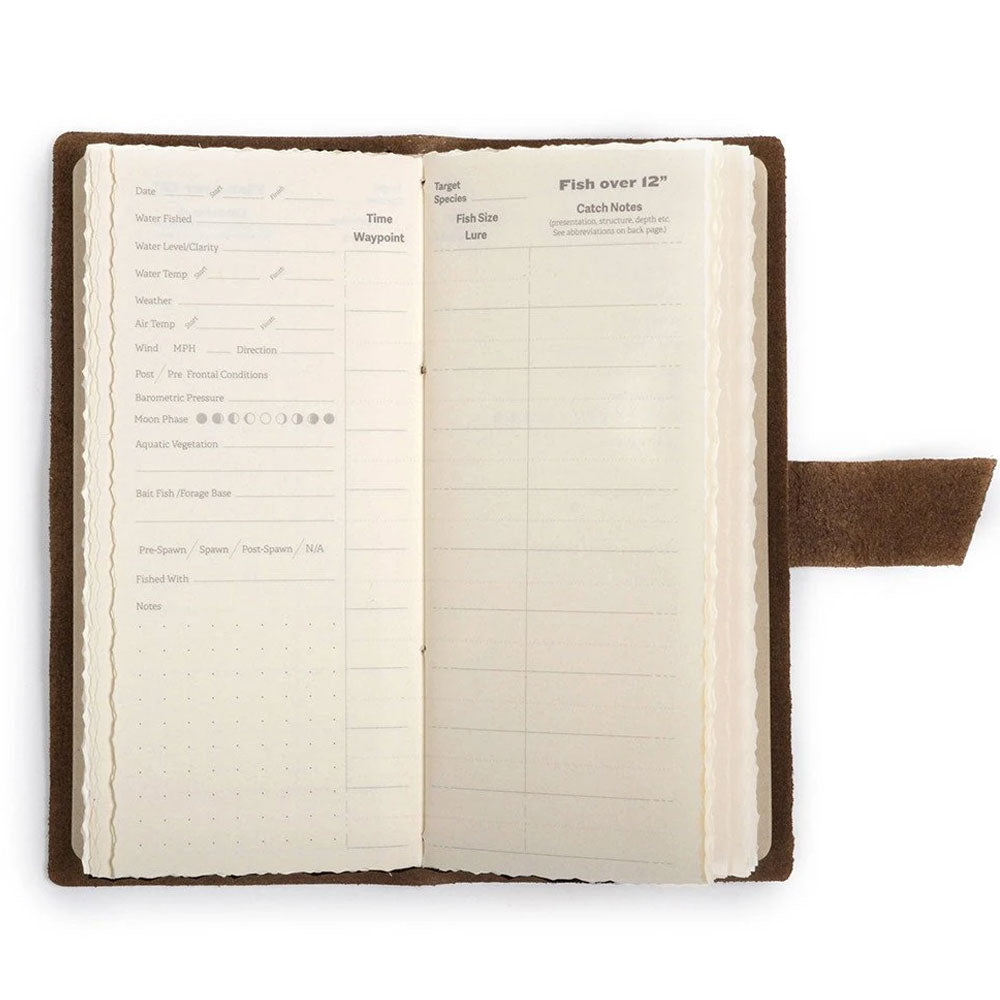 Date Start Finish
Water Fished
Water Level/Clarity
Water Temp Start Finish
Weather
Air Temp Start Finish
Wind MPH Direction
Post / Pre Frontal Conditions
Barometric Pressure
Moon Phase
Aquatic Vegetation
Bait Fish /Forage Base
Pre-Spawn / Spawn / Post-Spawn / N/A
Fished With
Notes
Time
Waypoint
Target
Species
Fish Size
Lure
Fish over 12”
Catch Notes
(presentation, structure, depth etc.
See abbreviations on back page.)